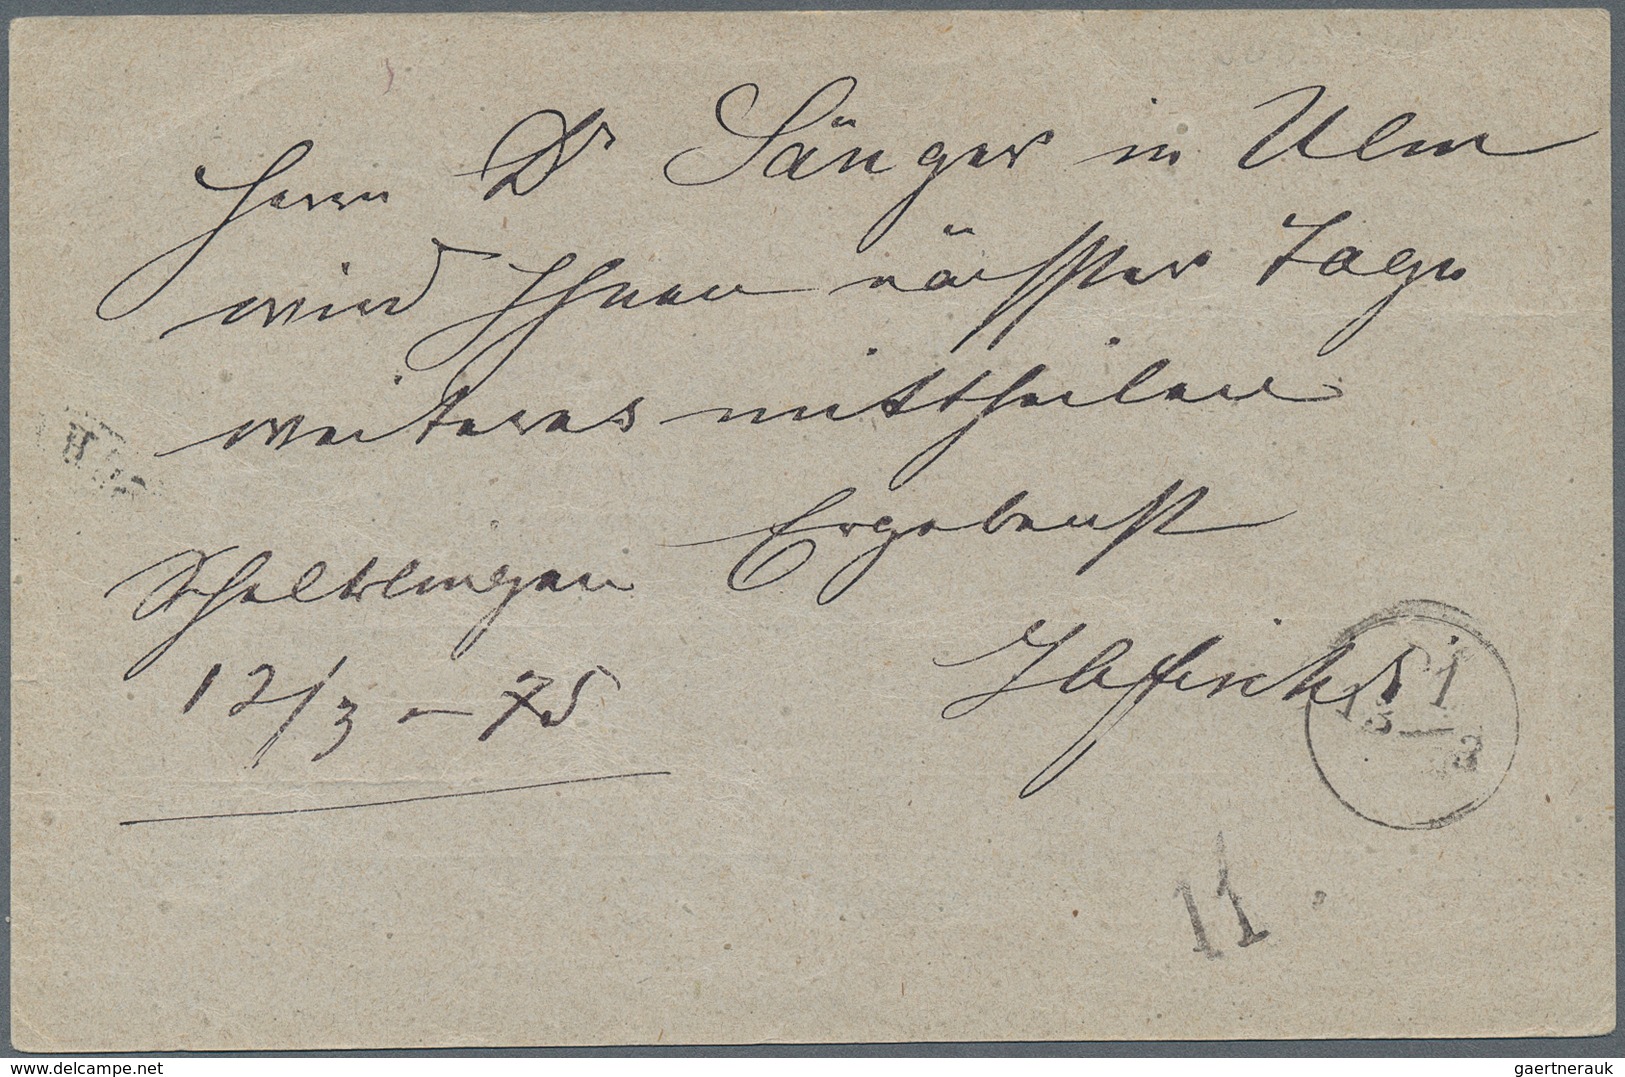 Herrn Dr Sänger in Ulm
wird Ihnen nächster Tage
weiteres mittheilen
Ergebenst
Schelklingen
12/3 – 75
13
3
11
www.delcampe.net
gaertnerauk